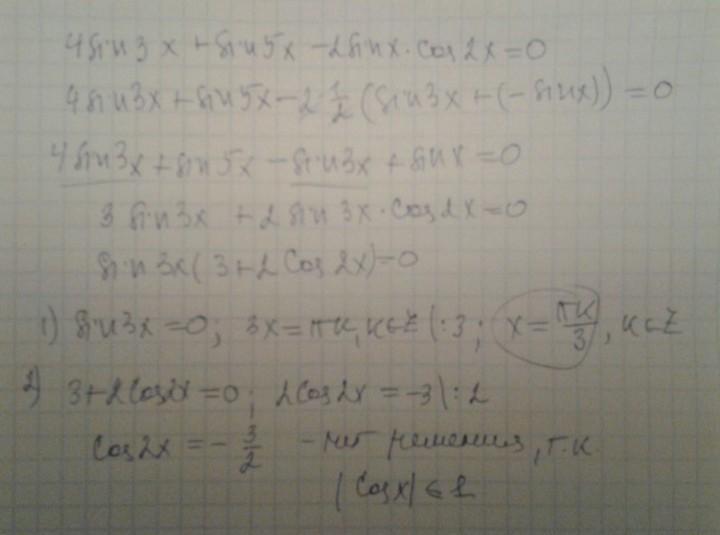 4sin3x + sin5x - 2sinx·cos2x = 0
4sin3x + sin5x - 2·1/2 (sin3x + (-sinx)) = 0
4sin3x + sin5x - sin3x + sinx = 0
3sin3x + 2sin3x·cos2x = 0
sin3x(3 + 2cos2x) = 0
1) sin3x = 0; 3x = πк, к∈Z |:3; x = πк/3, к∈Z
2) 3 + 2cos2x = 0; 2cos2x = -3 |:2
cos2x = - 3/2 - нет решения, т.к.
|cosx| ≤ 1